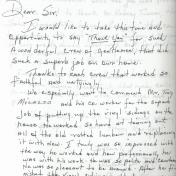 Dear Sir,
I would like to take the time and
opportunity to say "Thank You" for such
a wonderful crew of gentlemen, that did
such a superb job on our home.
Thanks to each crew that worked so
faithful and untiringly.
We especially want to comment Mr. Tony
and his co worker for the superb
job of putting up the vinyl sidings on the
house. He worked so hard at tearing out
all of the old rotted lumber and replacing
it with new. I truly was so impressed with
the way he worked and how professional, he
was with his work. He was so polite and
He was so pleasant to be around. After he